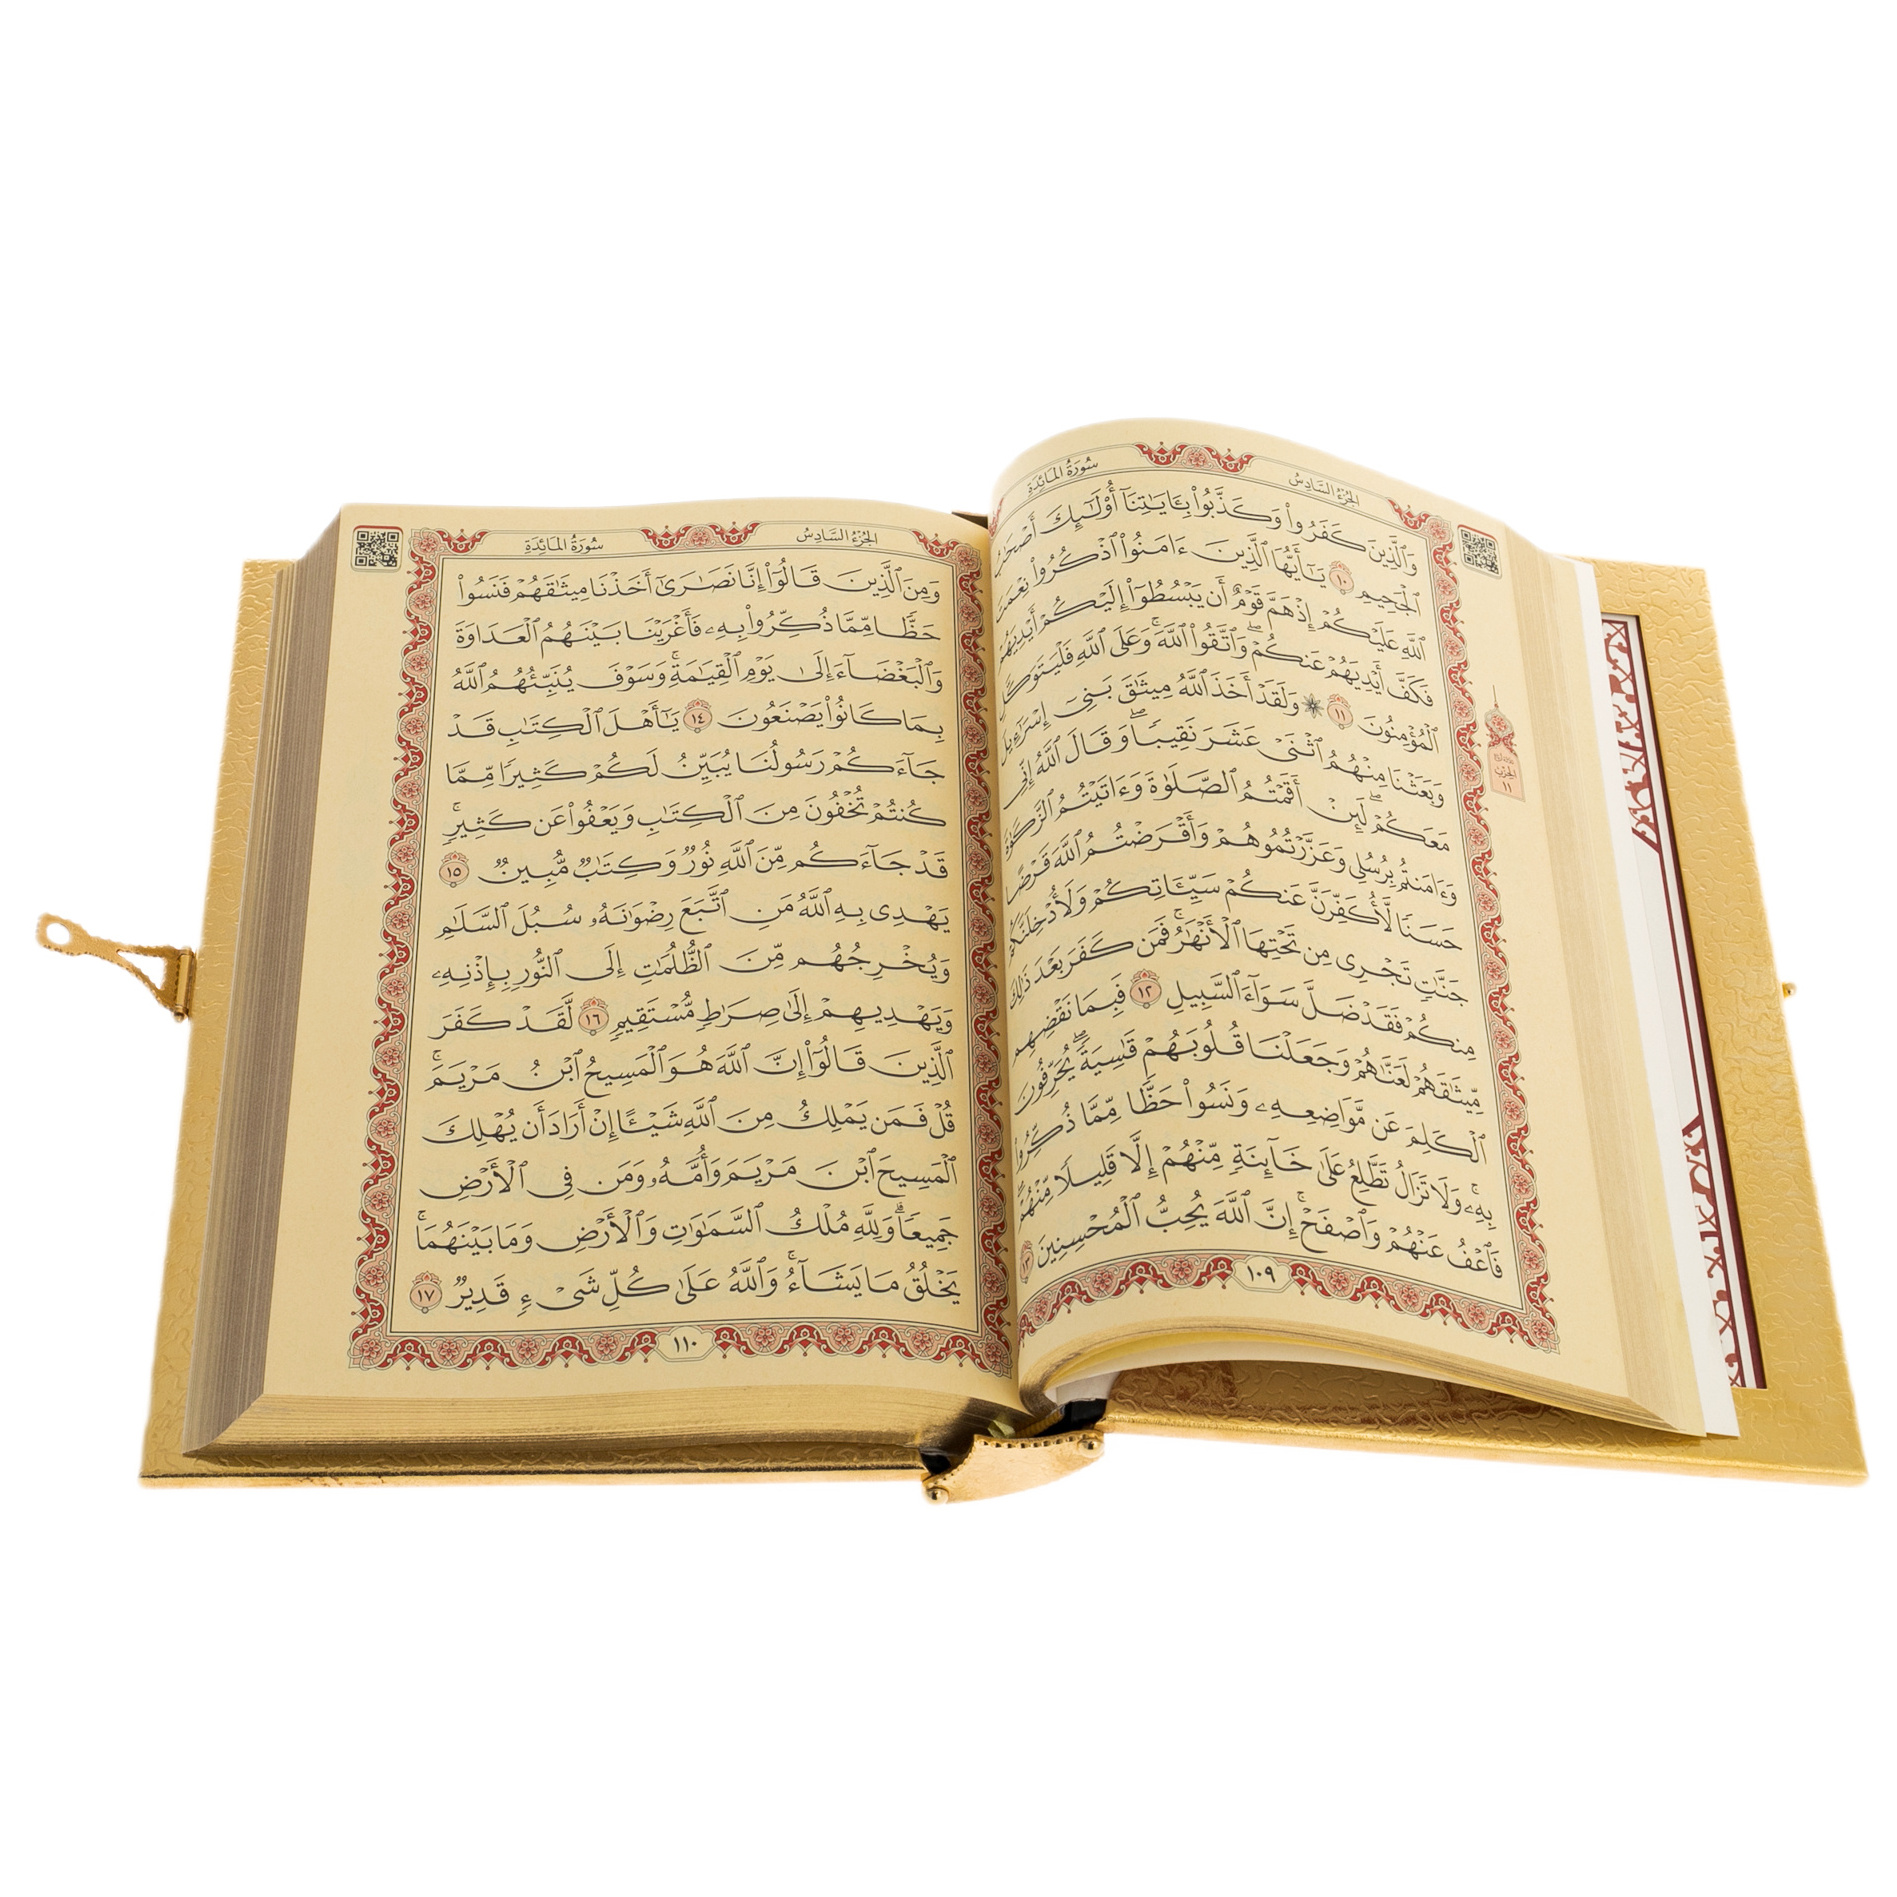 الجُزْءُ السَّادِسُ
سُورَةُ المَائِدَةِ
وَٱلَّذِينَ كَفَرُواْ وَكَذَّبُواْ بِـَٔايَٰتِنَآ أُوْلَٰٓئِكَ أَصۡحَٰبُ
ٱلۡجَحِيمِ ١٠ يَٰٓأَيُّهَا ٱلَّذِينَ ءَامَنُواْ ٱذۡكُرُواْ نِعۡمَتَ
ٱللَّهِ عَلَيۡكُمۡ إِذۡ هَمَّ قَوۡمٌ أَن يَبۡسُطُوٓاْ إِلَيۡكُمۡ أَيۡدِيَهُمۡ
فَكَفَّ أَيۡدِيَهُمۡ عَنكُمۡۖ وَٱتَّقُواْ ٱللَّهَۚ وَعَلَى ٱللَّهِ فَلۡيَتَوَكَّلِ
ٱلۡمُؤۡمِنُونَ ١١ ۞ وَلَقَدۡ أَخَذَ ٱللَّهُ مِيثَٰقَ بَنِيٓ إِسۡرَٰٓءِيلَ
وَبَعَثۡنَا مِنۡهُمُ ٱثۡنَيۡ عَشَرَ نَقِيبٗاۖ وَقَالَ ٱللَّهُ إِنِّي
مَعَكُمۡۖ لَئِنۡ أَقَمۡتُمُ ٱلصَّلَوٰةَ وَءَاتَيۡتُمُ ٱلزَّكَوٰةَ
وَءَامَنتُم بِرُسُلِي وَعَزَّرۡتُمُوهُمۡ وَأَقۡرَضۡتُمُ ٱللَّهَ قَرۡضًا
حَسَنٗا لَّأُكَفِّرَنَّ عَنكُمۡ سَيِّـَٔاتِكُمۡ وَلَأُدۡخِلَنَّكُمۡ
جَنَّٰتٖ تَجۡرِي مِن تَحۡتِهَا ٱلۡأَنۡهَٰرُۚ فَمَن كَفَرَ بَعۡدَ ذَٰلِكَ
مِنكُمۡ فَقَدۡ ضَلَّ سَوَآءَ ٱلسَّبِيلِ ١٢ فَبِمَا نَقۡضِهِم
مِّيثَٰقَهُمۡ لَعَنَّٰهُمۡ وَجَعَلۡنَا قُلُوبَهُمۡ قَٰسِيَةٗۖ يُحَرِّفُونَ
ٱلۡكَلِمَ عَن مَّوَاضِعِهِۦ وَنَسُواْ حَظّٗا مِّمَّا ذُكِّرُواْ
بِهِۦۚ وَلَا تَزَالُ تَطَّلِعُ عَلَىٰ خَآئِنَةٖ مِّنۡهُمۡ إِلَّا قَلِيلٗا مِّنۡهُمۡۖ
فَٱعۡفُ عَنۡهُمۡ وَٱصۡفَحۡۚ إِنَّ ٱللَّهَ يُحِبُّ ٱلۡمُحۡسِنِينَ ١٣
١٠٩
الحزب
١١
الجُزْءُ السَّادِسُ
سُورَةُ المَائِدَةِ
وَمِنَ ٱلَّذِينَ قَالُوٓاْ إِنَّا نَصَٰرَىٰٓ أَخَذۡنَا مِيثَٰقَهُمۡ فَنَسُواْ
حَظّٗا مِّمَّا ذُكِّرُواْ بِهِۦ فَأَغۡرَيۡنَا بَيۡنَهُمُ ٱلۡعَدَاوَةَ
وَٱلۡبَغۡضَآءَ إِلَىٰ يَوۡمِ ٱلۡقِيَٰمَةِۚ وَسَوۡفَ يُنَبِّئُهُمُ ٱللَّهُ
بِمَا كَانُواْ يَصۡنَعُونَ ١٤ يَٰٓأَهۡلَ ٱلۡكِتَٰبِ قَدۡ
جَآءَكُمۡ رَسُولُنَا يُبَيِّنُ لَكُمۡ كَثِيرٗا مِّمَّا
كُنتُمۡ تُخۡفُونَ مِنَ ٱلۡكِتَٰبِ وَيَعۡفُواْ عَن كَثِيرٖۚ
قَدۡ جَآءَكُم مِّنَ ٱللَّهِ نُورٞ وَكِتَٰبٞ مُّبِينٞ ١٥
يَهۡدِي بِهِ ٱللَّهُ مَنِ ٱتَّبَعَ رِضۡوَٰنَهُۥ سُبُلَ ٱلسَّلَٰمِ
وَيُخۡرِجُهُم مِّنَ ٱلظُّلُمَٰتِ إِلَى ٱلنُّورِ بِإِذۡنِهِۦ
وَيَهۡدِيهِمۡ إِلَىٰ صِرَٰطٖ مُّسۡتَقِيمٖ ١٦ لَّقَدۡ كَفَرَ
ٱلَّذِينَ قَالُوٓاْ إِنَّ ٱللَّهَ هُوَ ٱلۡمَسِيحُ ٱبۡنُ مَرۡيَمَۚ
قُلۡ فَمَن يَمۡلِكُ مِنَ ٱللَّهِ شَيۡـًٔا إِنۡ أَرَادَ أَن يُهۡلِكَ
ٱلۡمَسِيحَ ٱبۡنَ مَرۡيَمَ وَأُمَّهُۥ وَمَن فِي ٱلۡأَرۡضِ
جَمِيعٗاۗ وَلِلَّهِ مُلۡكُ ٱلسَّمَٰوَٰتِ وَٱلۡأَرۡضِ وَمَا بَيۡنَهُمَاۚ
يَخۡلُقُ مَا يَشَآءُۚ وَٱللَّهُ عَلَىٰ كُلِّ شَيۡءٖ قَدِيرٞ ١٧
١١٠